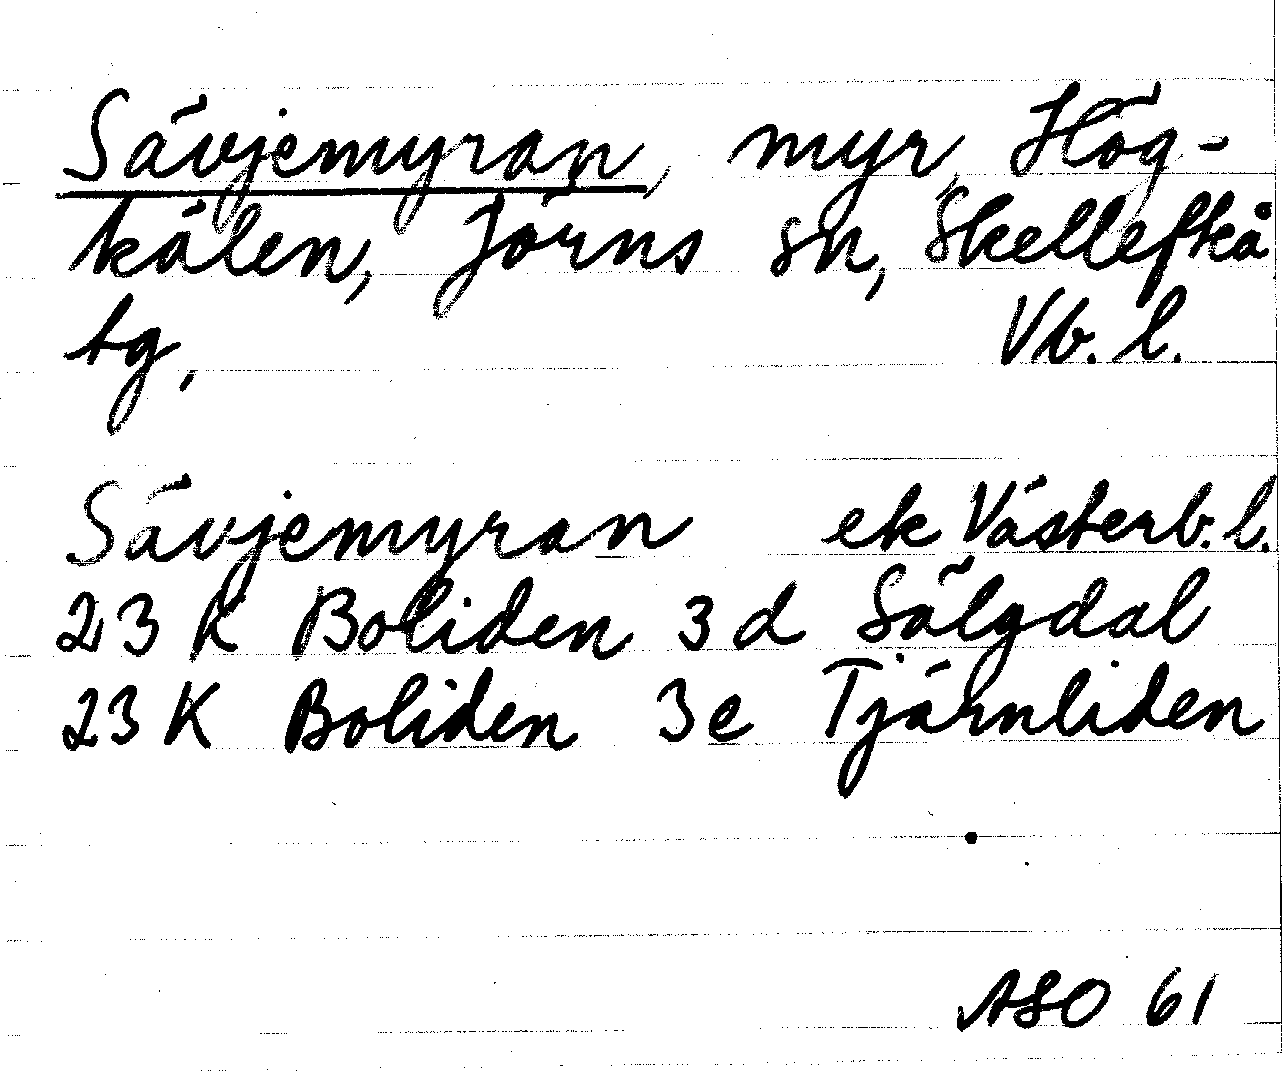 Sävjemyran, myr, Hög-
kälen, Jörns sn, Skellefteå
tg, Vb. l.
Sävjemyran ek Västerb. l.
23 K Boliden 3 d Sälgdal
23 K Boliden 3e Tjärnliden
ASO 61